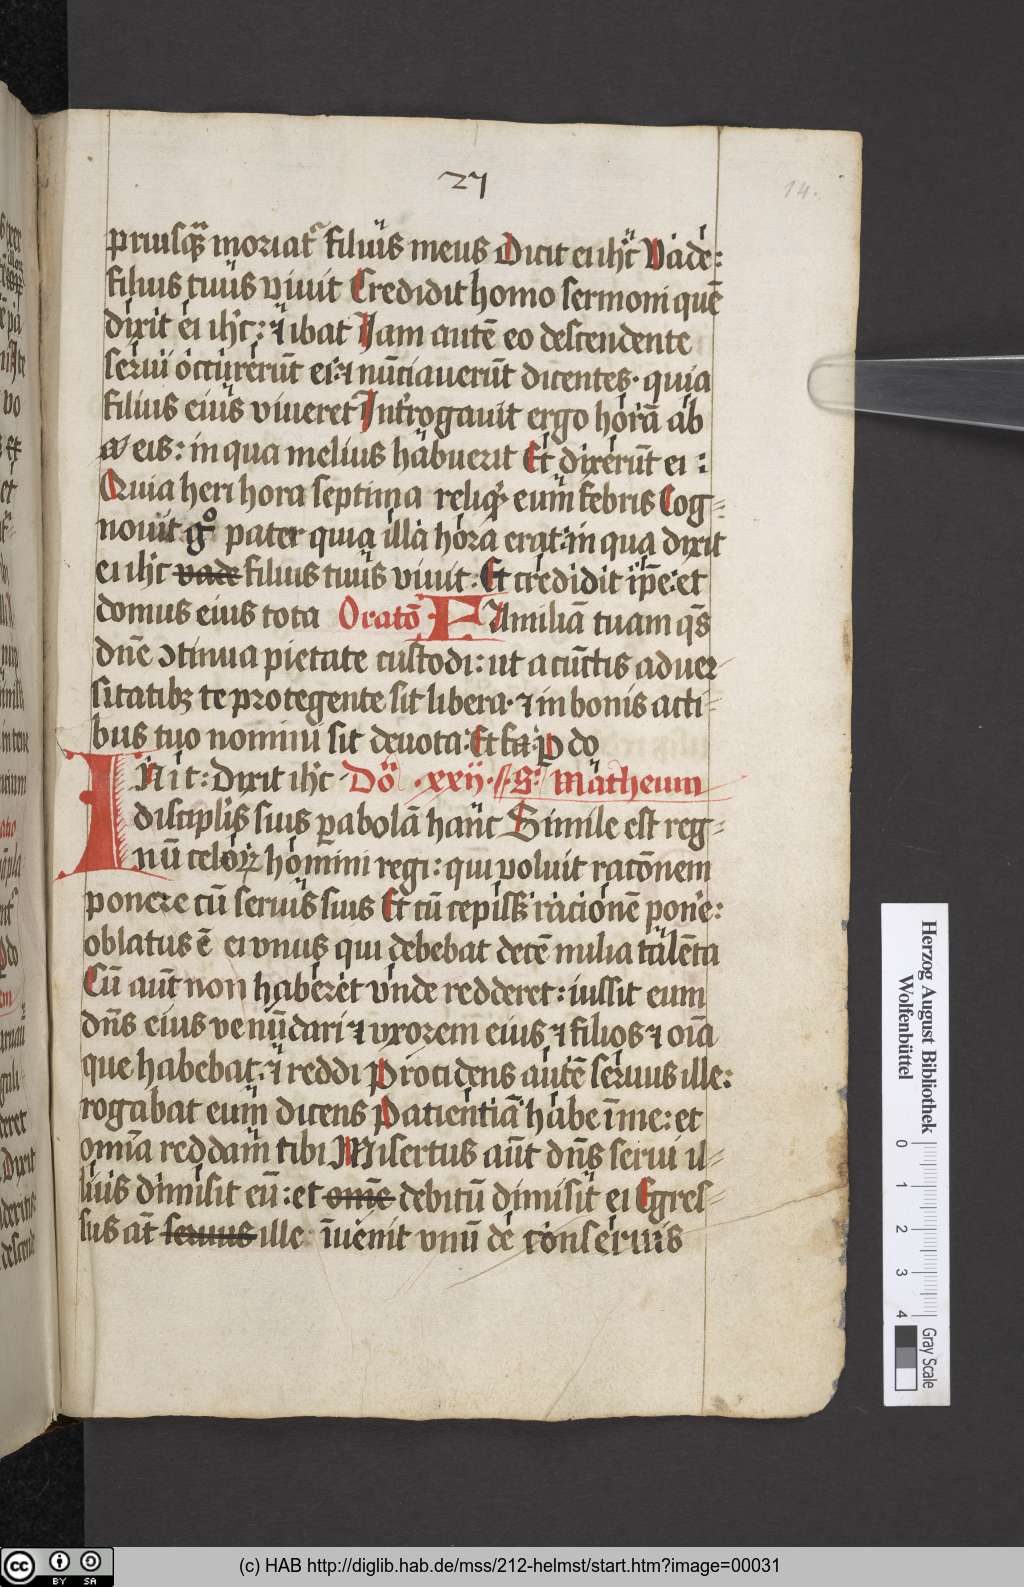 27
14.
priusq̄ moriat᷑ filius meus Dicit ei ihc̄ Vade:
filius tuus viuit Credidit homo sermoni quē
dixit ei ihc̄: ⁊ ibat Jam autē eo descendente
serui occurerūt ei: ⁊ nūciauerūt dicentes· quia
filius eius viueret Jnt̄rogauit ergo horā ab
eis: in qua melius habuerit Et dixerūt ei:
Quia heri hora septima reliqͥt eum febris Cog-
nouit gͦ pater quia illa hora erat: in qua dixit
ei ihc̄ vade filius tuus viuit: Et credidit ip̄e: et
domus eius tota Oratō FAmiliā tuam qs̄
dn̄e ꝯtinua pietate custodi: ut a cūctis aduer-
sitatibꝫ te protegente sit libera· ⁊ in bonis acti-
bus tuo nomini sit deuota· Et fa· P do
JN it: Dixit ihc̄ Dō ·xxij· S· Matheum
discipl̄is suis ꝑabolā hanc Simile est reg-
nū celoꝝ homini regi: qui voluit racōnem
ponere cū seruis suis Et cū cepiss᷑ racionē pone᷑:
oblatus ē ei vnus qui debebat decē milia talēta
Cū aūt non haberet vnde redderet: iussit eum
dn̄s eius venūdari ⁊ vxorem eius ⁊ filios ⁊ oīa
que habebat: ⁊ reddi Procidens autē seruus ille:
rogabat eum dicens Patientiā habe ī me: et
omīa reddam tibi Misertus aūt dn̄s serui il-
lius dimisit eū: et om̄e debitū dimisit ei Egres-
sus aūt seruus ille īuenit vnū de conseruis
Herzog August Bibliothek
Wolfenbüttel
0 1 2 3 4
Gray Scale
cc BY SA
(c) HAB http://diglib.hab.de/mss/212-helmst/start.htm?image=00031